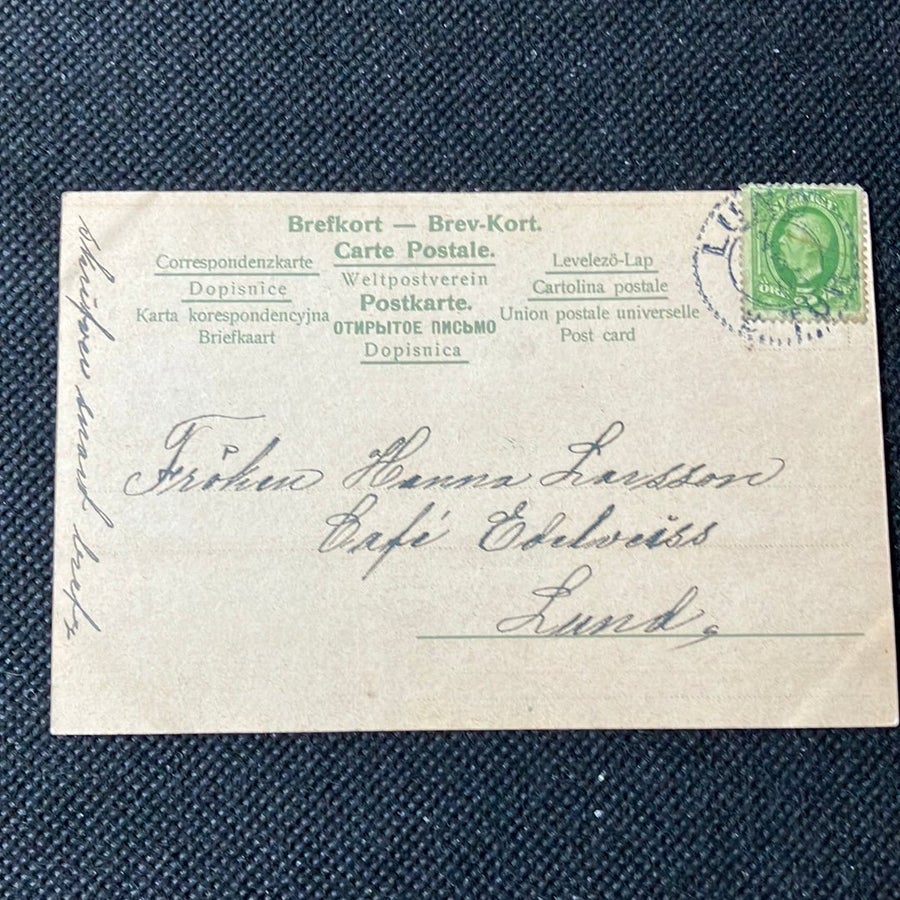 Brefkort — Brev-Kort.
Carte Postale.
Correspondenzkarte
Weltpostverein
Levelező-Lap
Dopisnice
Postkarte.
Cartolina postale
Karta korespondencyjna
ОТКРЫТОЕ ПИСЬМО
Union postale universelle
Briefkaart
Dopisnica
Post card
Fröken Hanna Larsson
Café Edelweiss
Lund,
snart bref